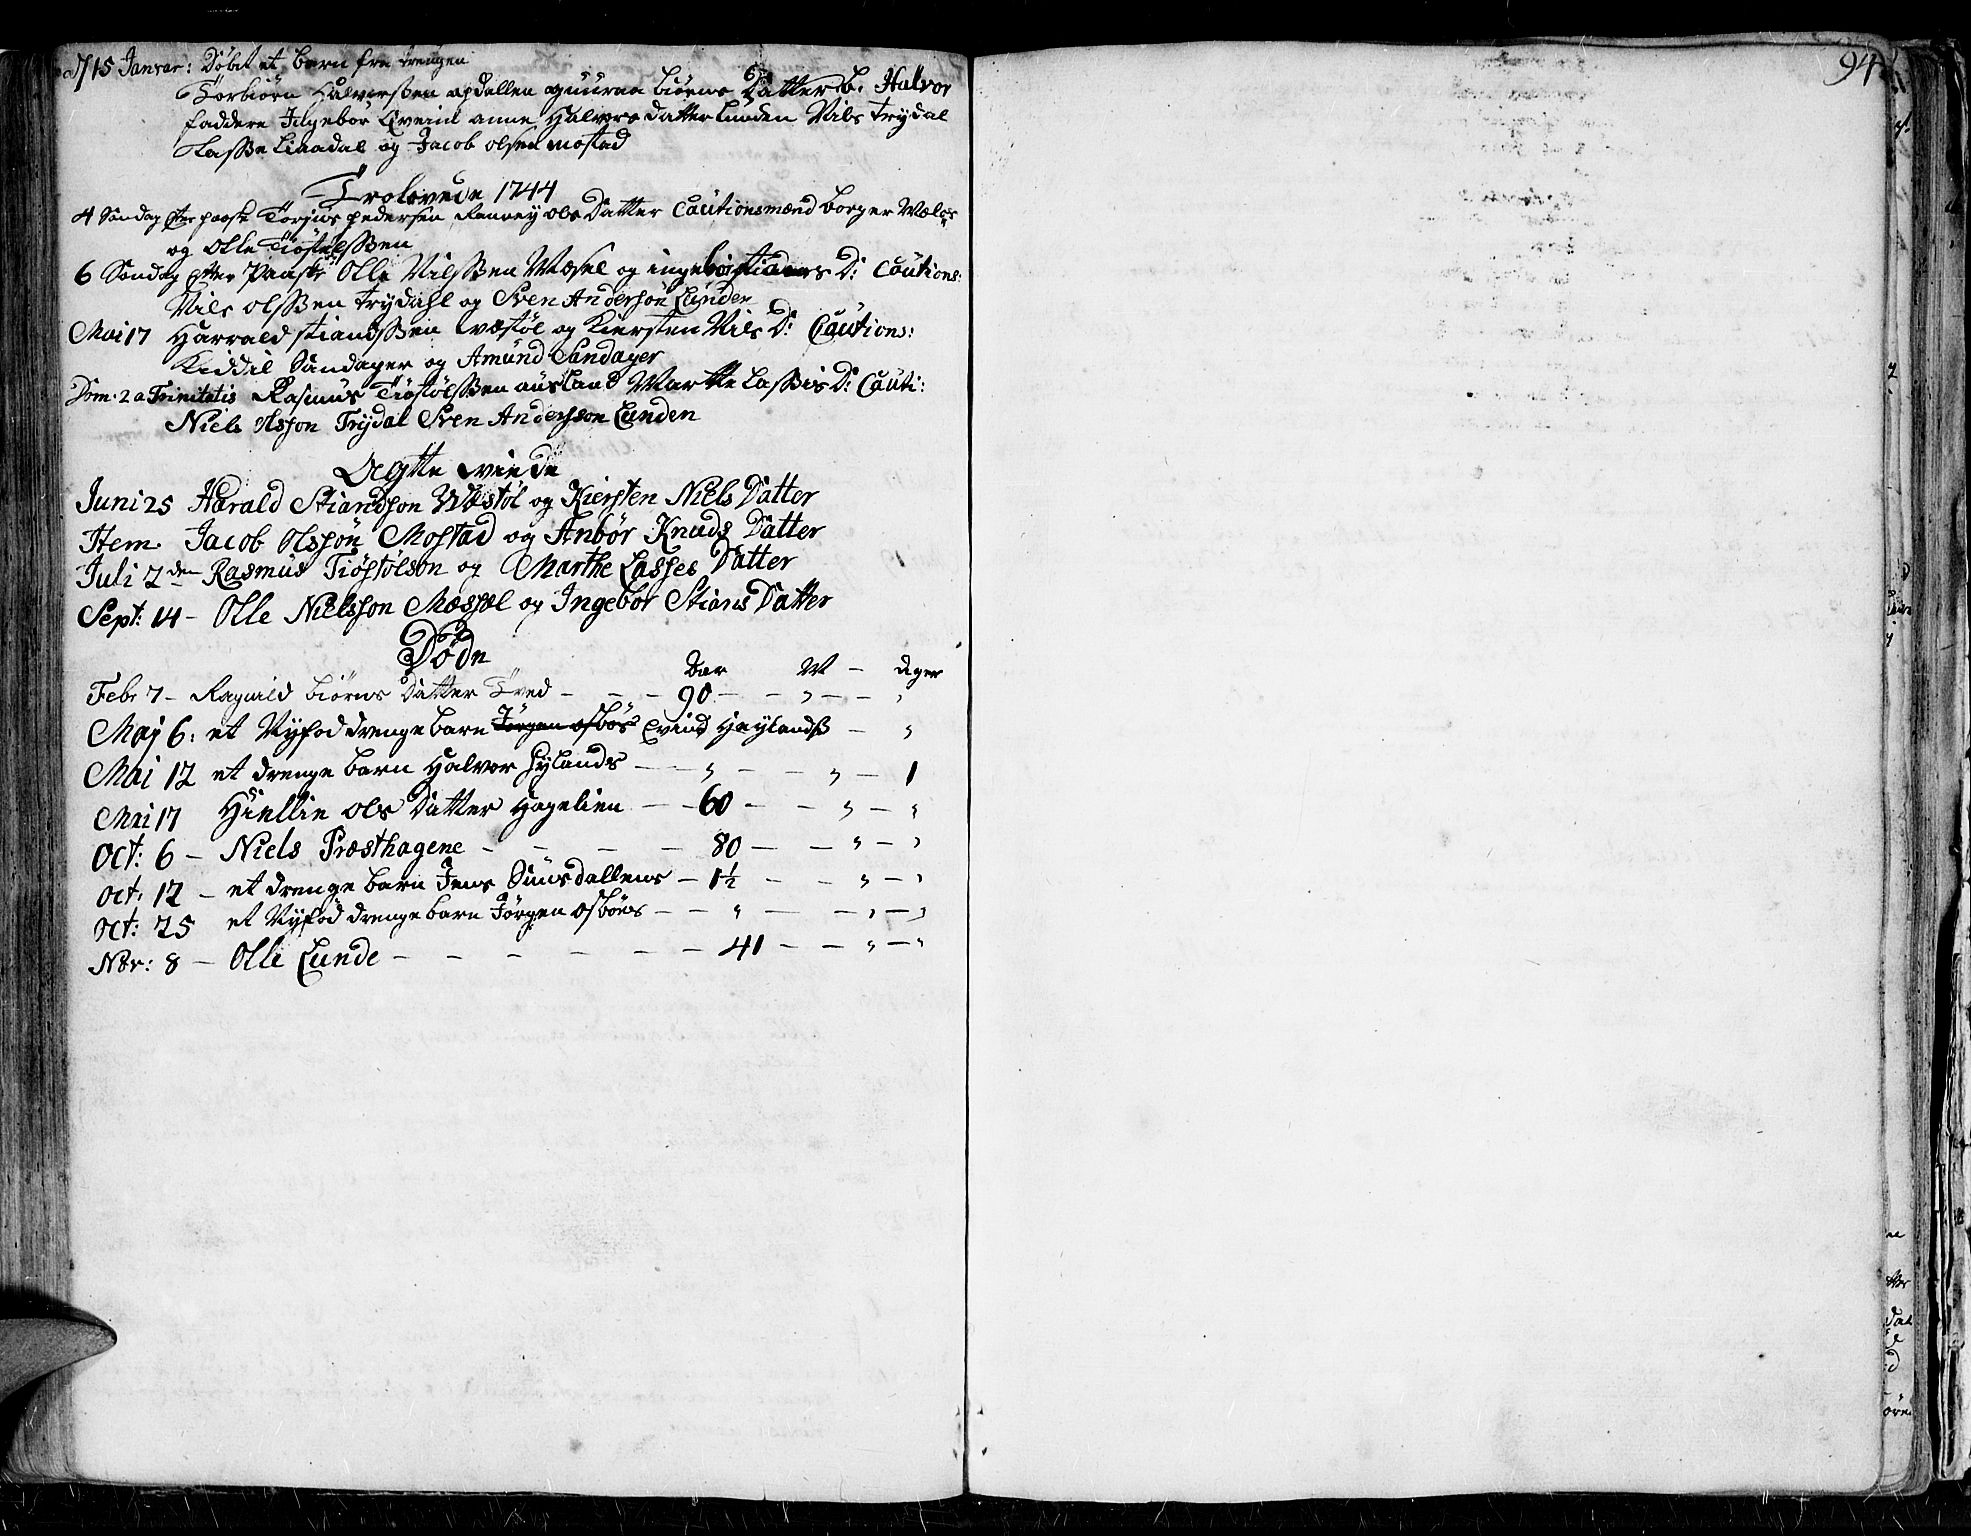 d 15 Januar: Döbit et barn fra
Torbiörn Halvorssen opdallen og guuroe biörns Datter b: Halvor
faddere Ingebor Qveind anne Halvors datter Lunden Nils Trydal
Lasse Liaadal og Jacob olsen mostad
Trolovede 1744
4 Söndag efter paaske Torjus pedersen Ranvey ols Datter Cautionsmænd borger
og Olle Tiöstelssen
6 Söndag efter Paaske Olle Nilssen Mæsel og ingebor D: Cautions:
Nils olssen Trydahl og Sven Anderson Lunden
Mai 17 Harrald stiandssen wæstöl og Kiersten Nils D: Cautions:
Kiddil Sandager og Amund Sandager
Dom. 2 a Trinitatis Rasmus Tiöstölssen ausland Martte Lassis D: Cauti:
Niels Olsson Trydal Sven Andersson Lunden
Ægtte viede
Juni 25 Harald Stiandson Wæstöl og Kiersten Niels Datter
Item Jacob Olsson Mostad og Anbör Knuds Datter
Juli 2den Rasmus Tiöstölson og Marthe Lasses Datter
Sept: 14 - Olle Nielsson Mæssel og Ingebor Stians Datter
Döde
Aar M - dager
Febr 7 - Ragnild biörns Datter Tved - - - 90 - - " - - "
Maj 6: et Nyfød drenge barn Jörgen osbörs Evind Høylands - "
Mai 12 et drenge barn Halvor Hylands - - " - - " - 1
Mai 17 Hiellie ols Datter Hagelien - - 60 - - " - "
Oct: 6 - Niels Præsthagene - - - - 80 - - " - "
Oct: 12 - et drenge barn Jens Duusdallens - 1½ - - " - "
Oct: 25 et Nyfød drenge barn Jörgen osbörs - - " - - " - "
Nov: 8 - Olle Lunde - - - - - - 41 - - " - "
94